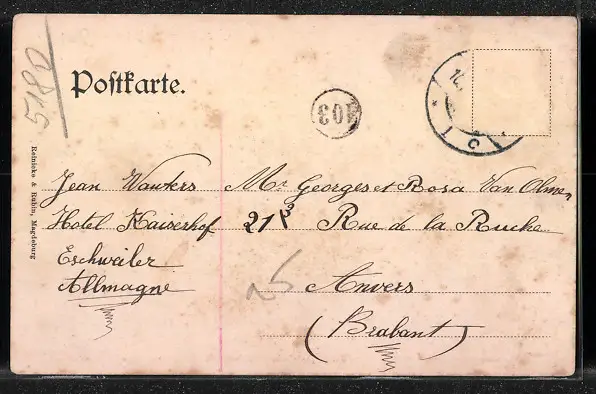 5180
Postkarte.
103
Reinicke & Rubin, Magdeburg
Jean Wauters
Hotel Kaiserhof
Eschweiler
Allmagne
Mr Georges et Rosa Van Olmen
21 Rue de la Ruche
Anvers
(Brabant)